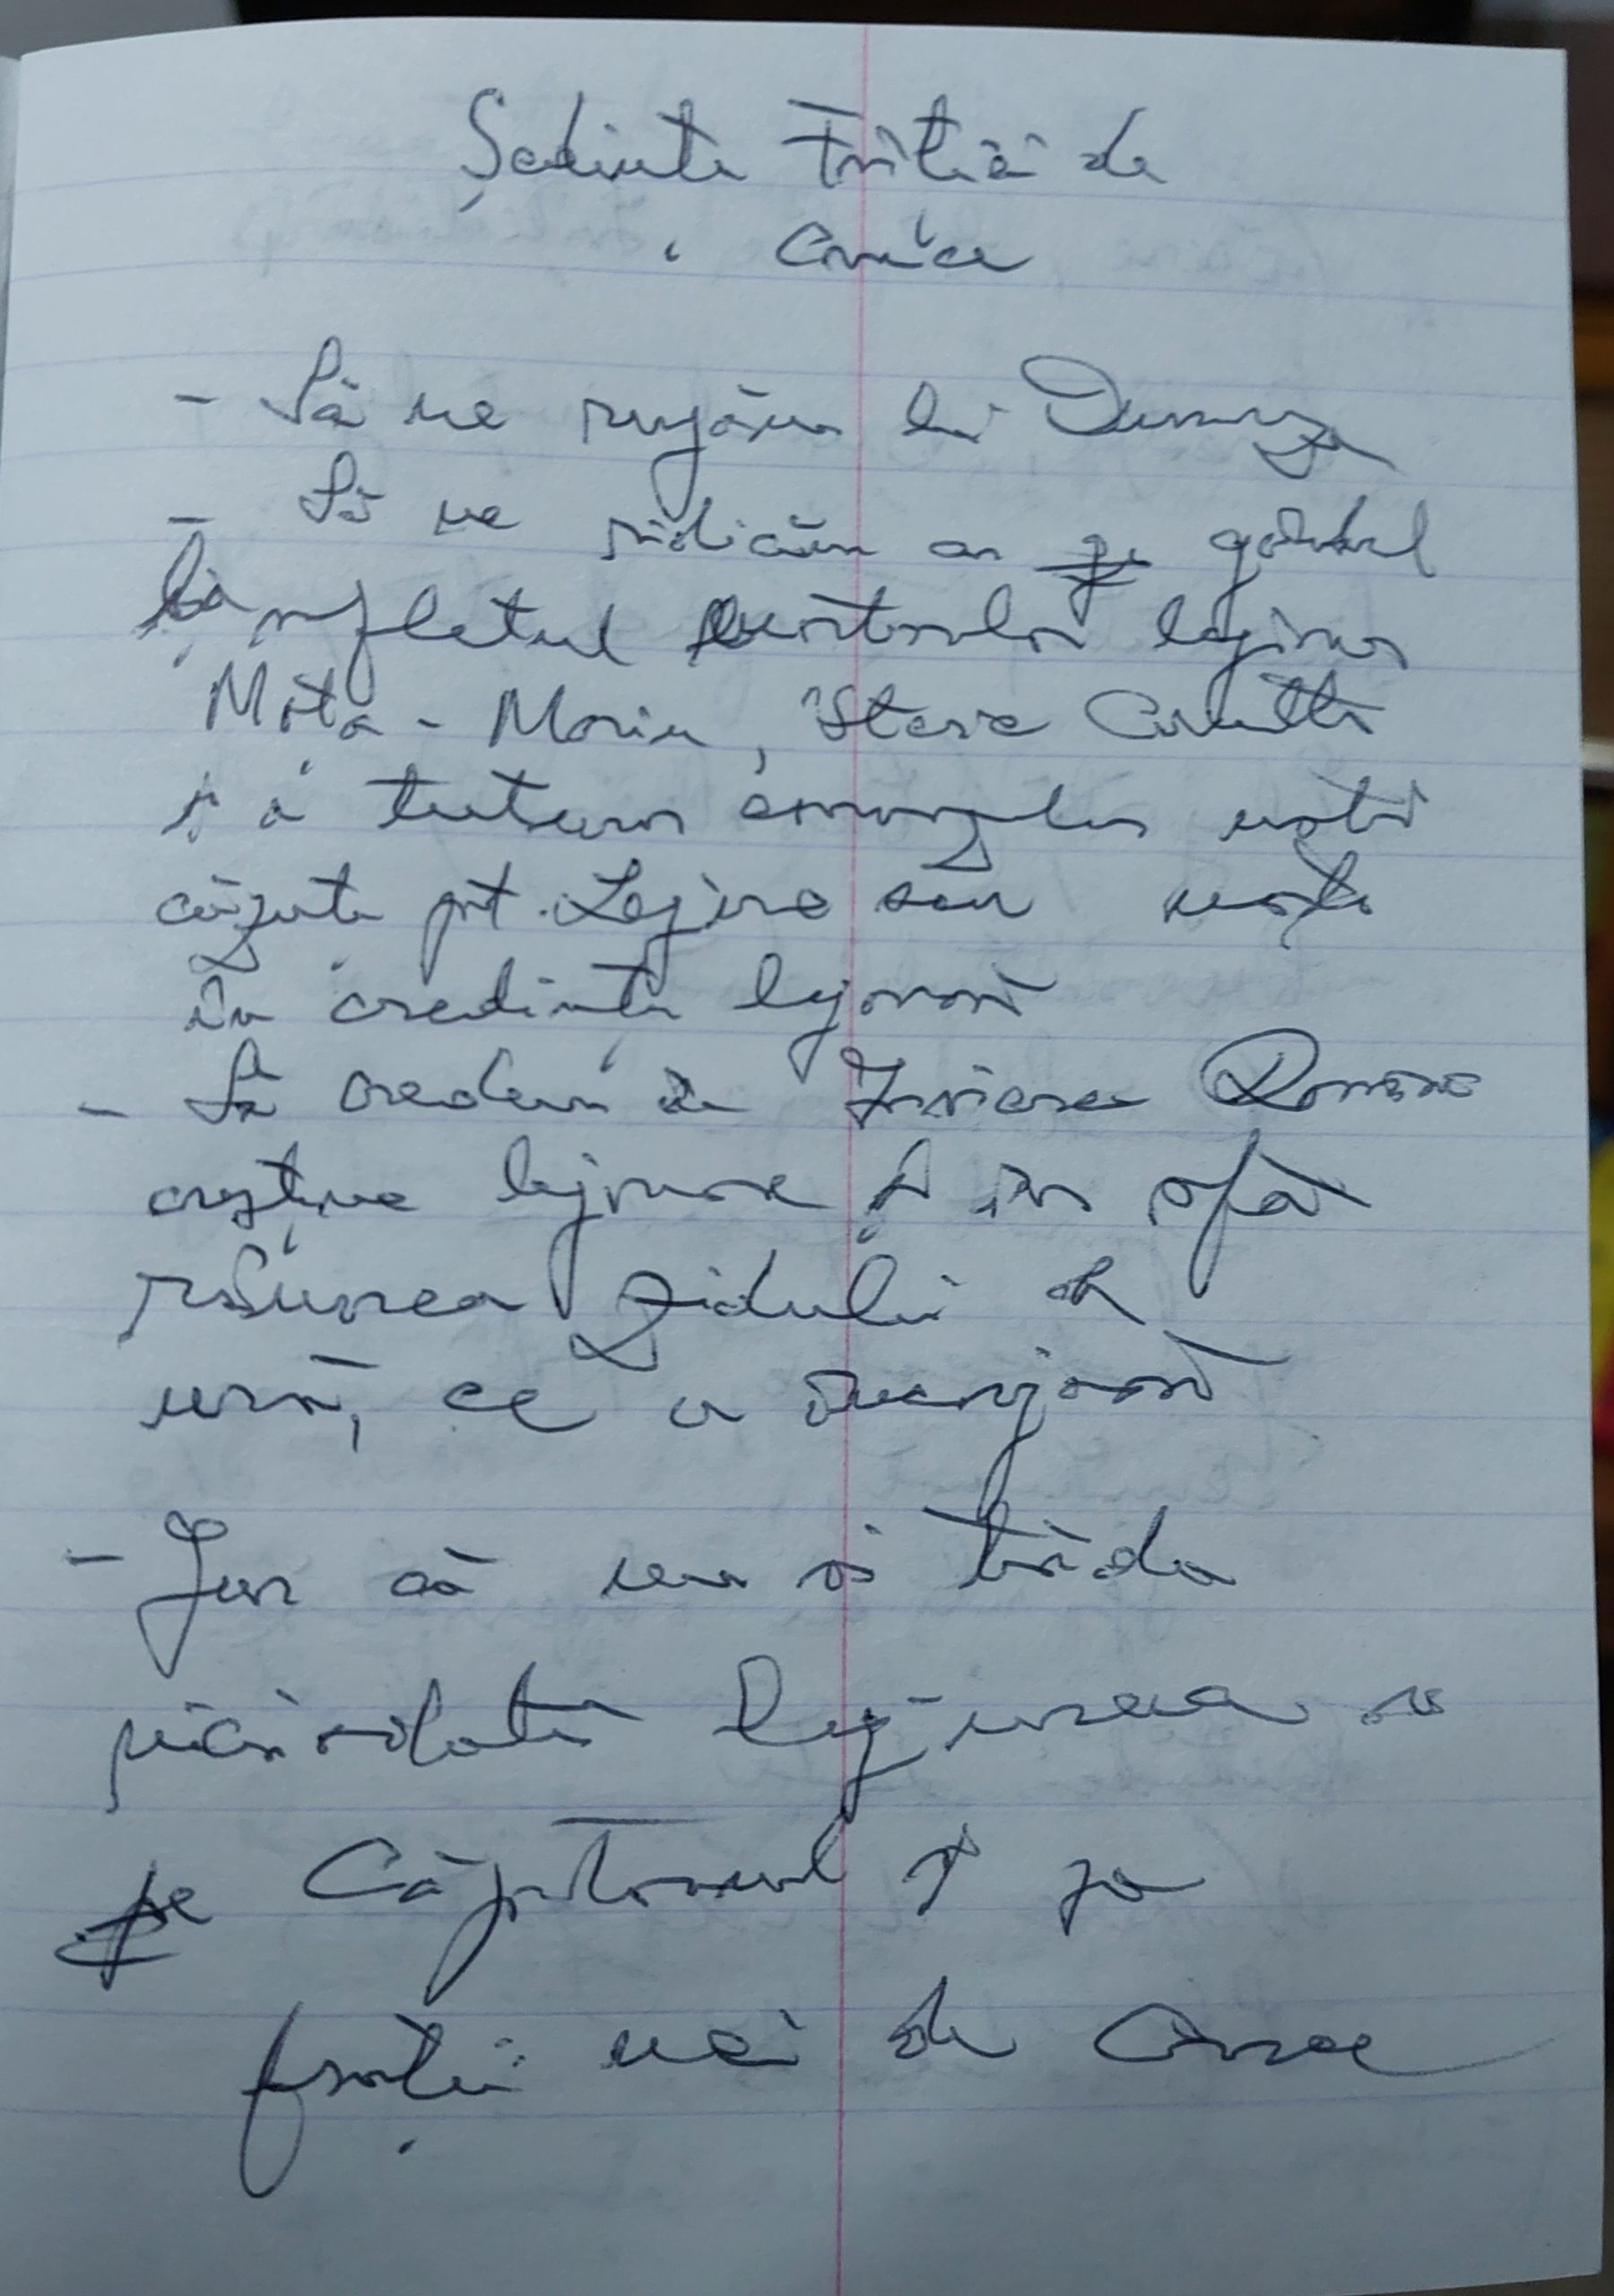 Ședința Frăției de
Cruce
- Să ne rugăm lui Dumnezeu
- Să ne ridicăm cu gândul
la sufletul martirilor legionari
Moța - Marin, Sterie Ciumetti
și a tuturor camarazilor noștri
căzuți pt. Legiune sau morți
în credința legionară
- Să credem în Învierea României
creștine legionare și în sfă-
râmarea zidului de
ură, ce o înconjoară
- Jur că nu voi trăda
niciodată Legiunea
pe Căpitanul și pe
frații mei de Cruce